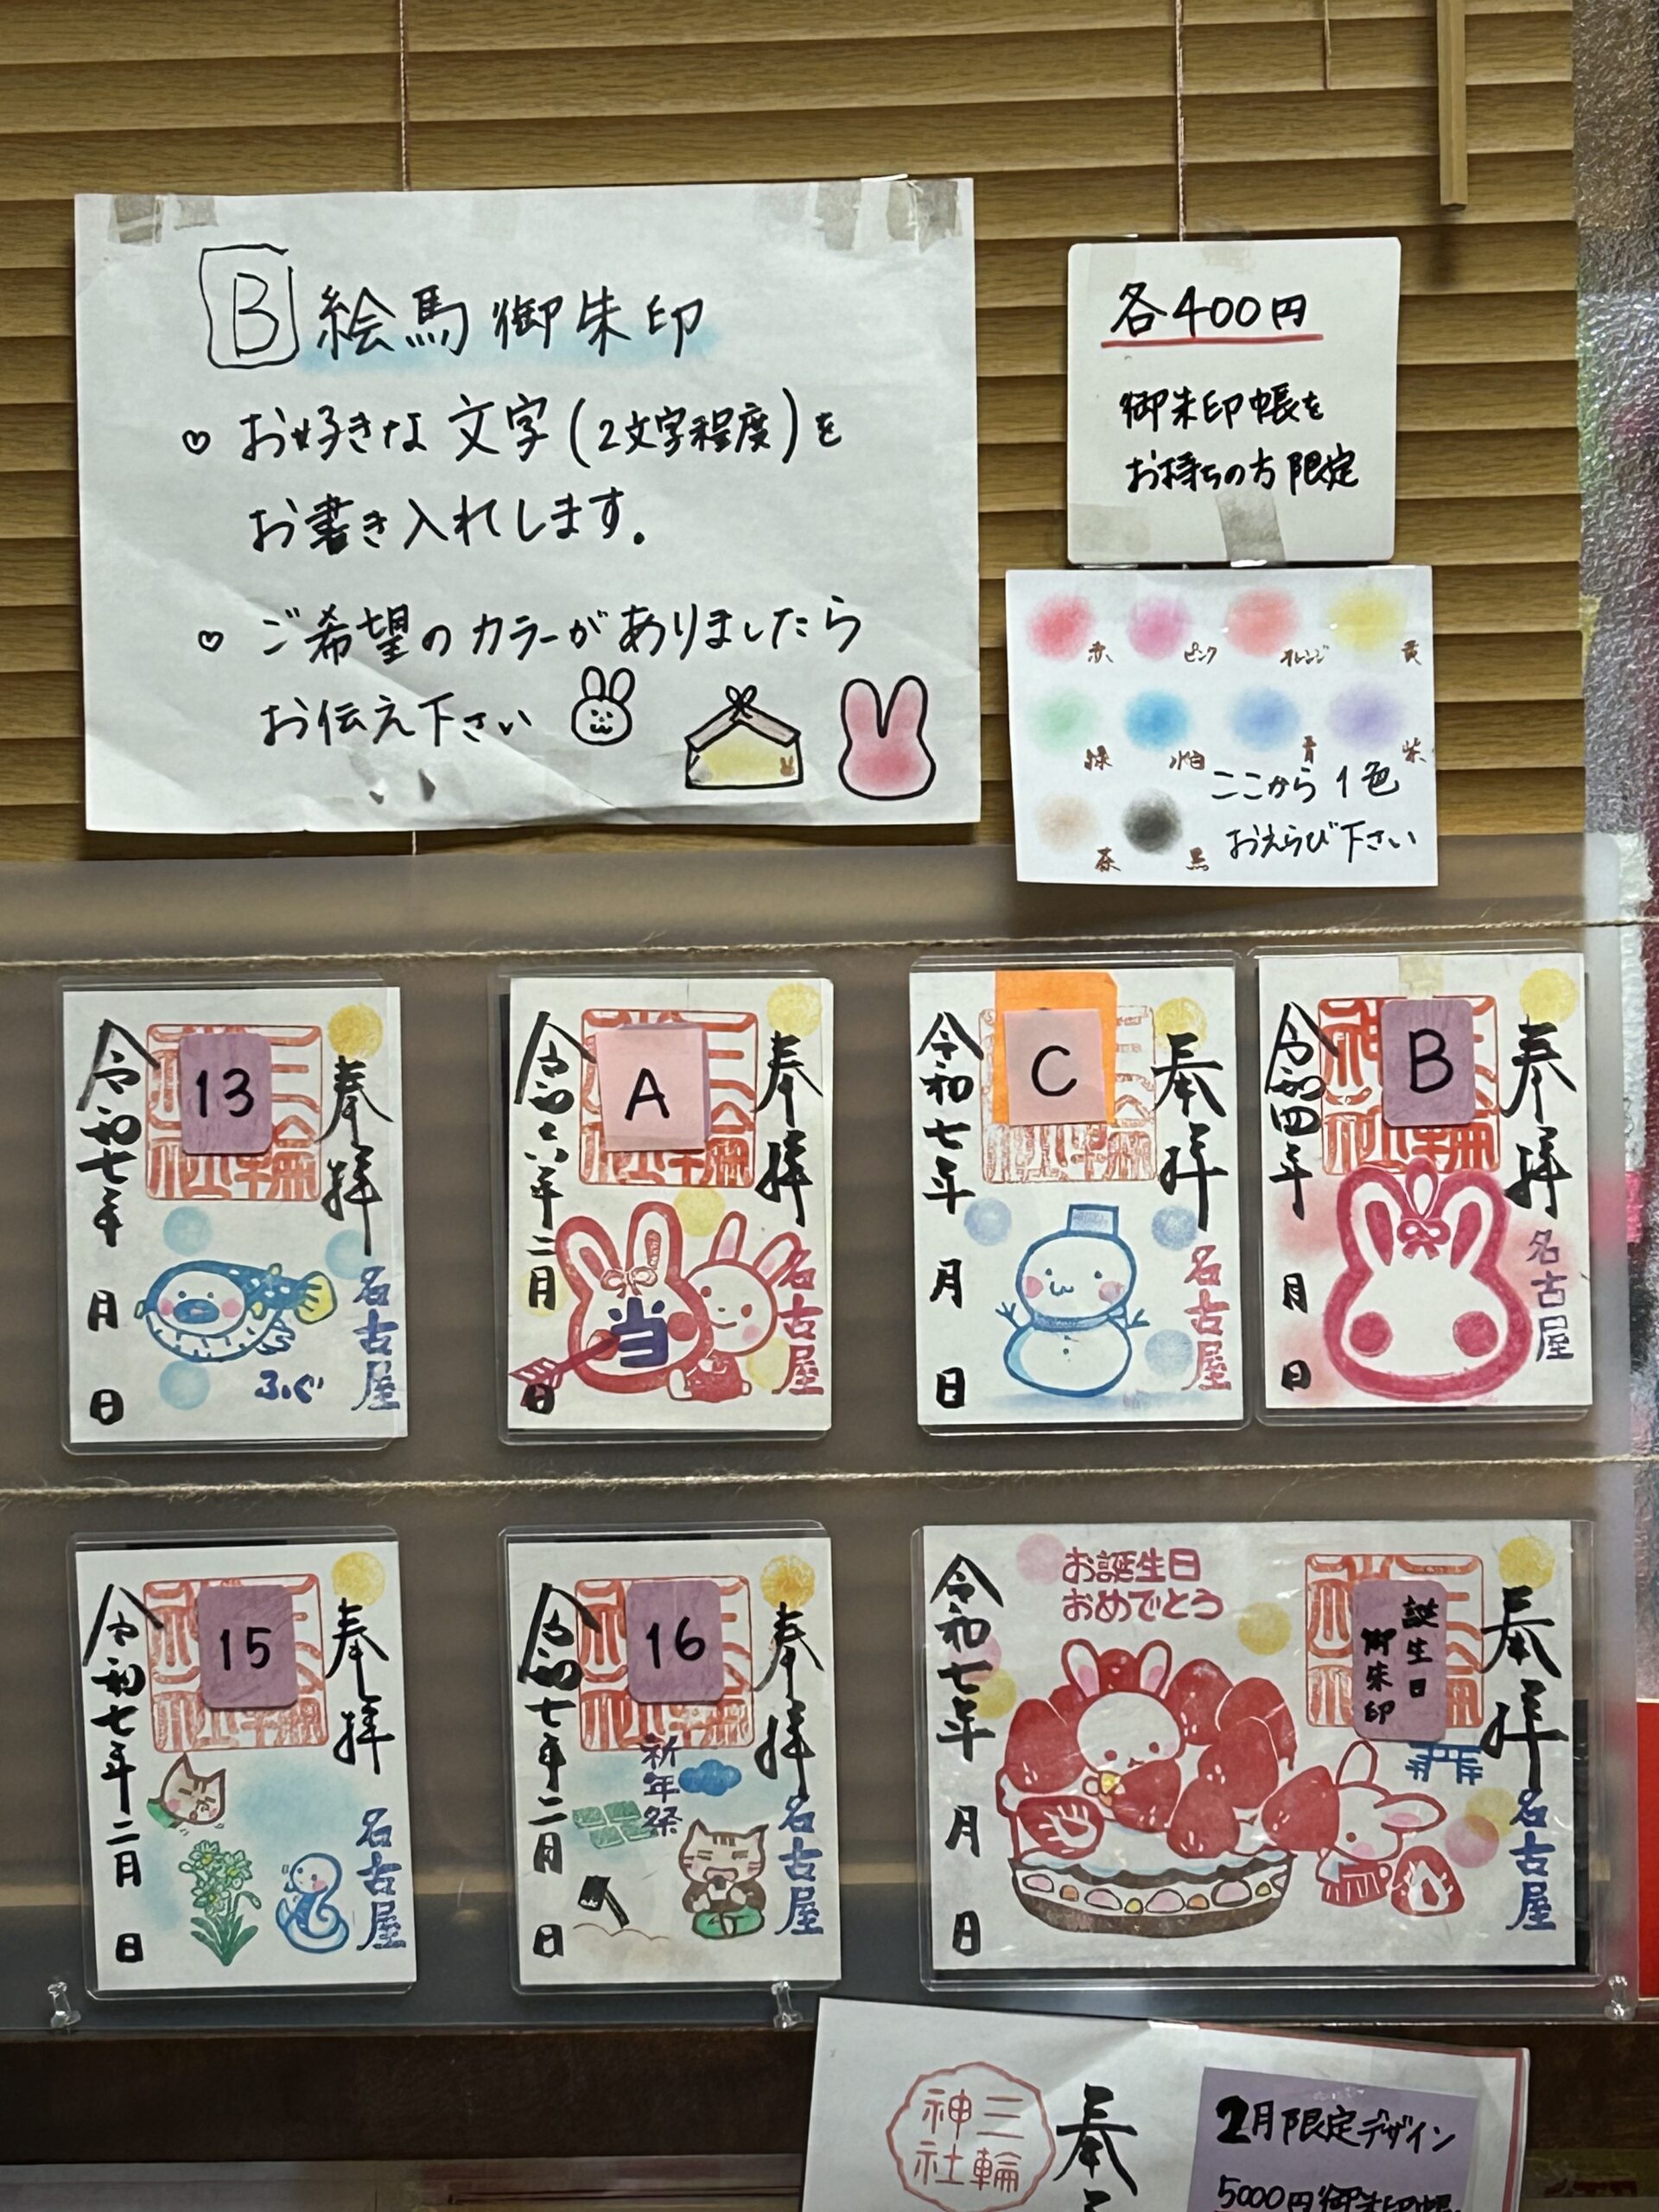 B 絵馬御朱印
♡ お好きな文字(2文字程度)を
お書き入れします。
♡ ご希望のカラーがありましたら
お伝え下さい
各400円
御朱印帳を
お持ちの方限定
赤 ピンク オレンジ 黄
緑 水色 青 紫
茶 黒
ここから1色
おえらび下さい
13
奉拝
名古屋
ふぐ
令和七年 月 日
A
奉拝
名古屋
当
令和六年二月 日
C
奉拝
名古屋
令和七年 月 日
B
奉拝
名古屋
令和四年 月 日
15
奉拝
名古屋
令和七年二月 日
16
奉拝
名古屋
祈年祭
令和七年二月 日
奉拝
名古屋
誕生日
御朱印
お誕生日
おめでとう
令和七年 月 日
三輪
神社
奉
2月限定デザイン
5000円御朱印帳